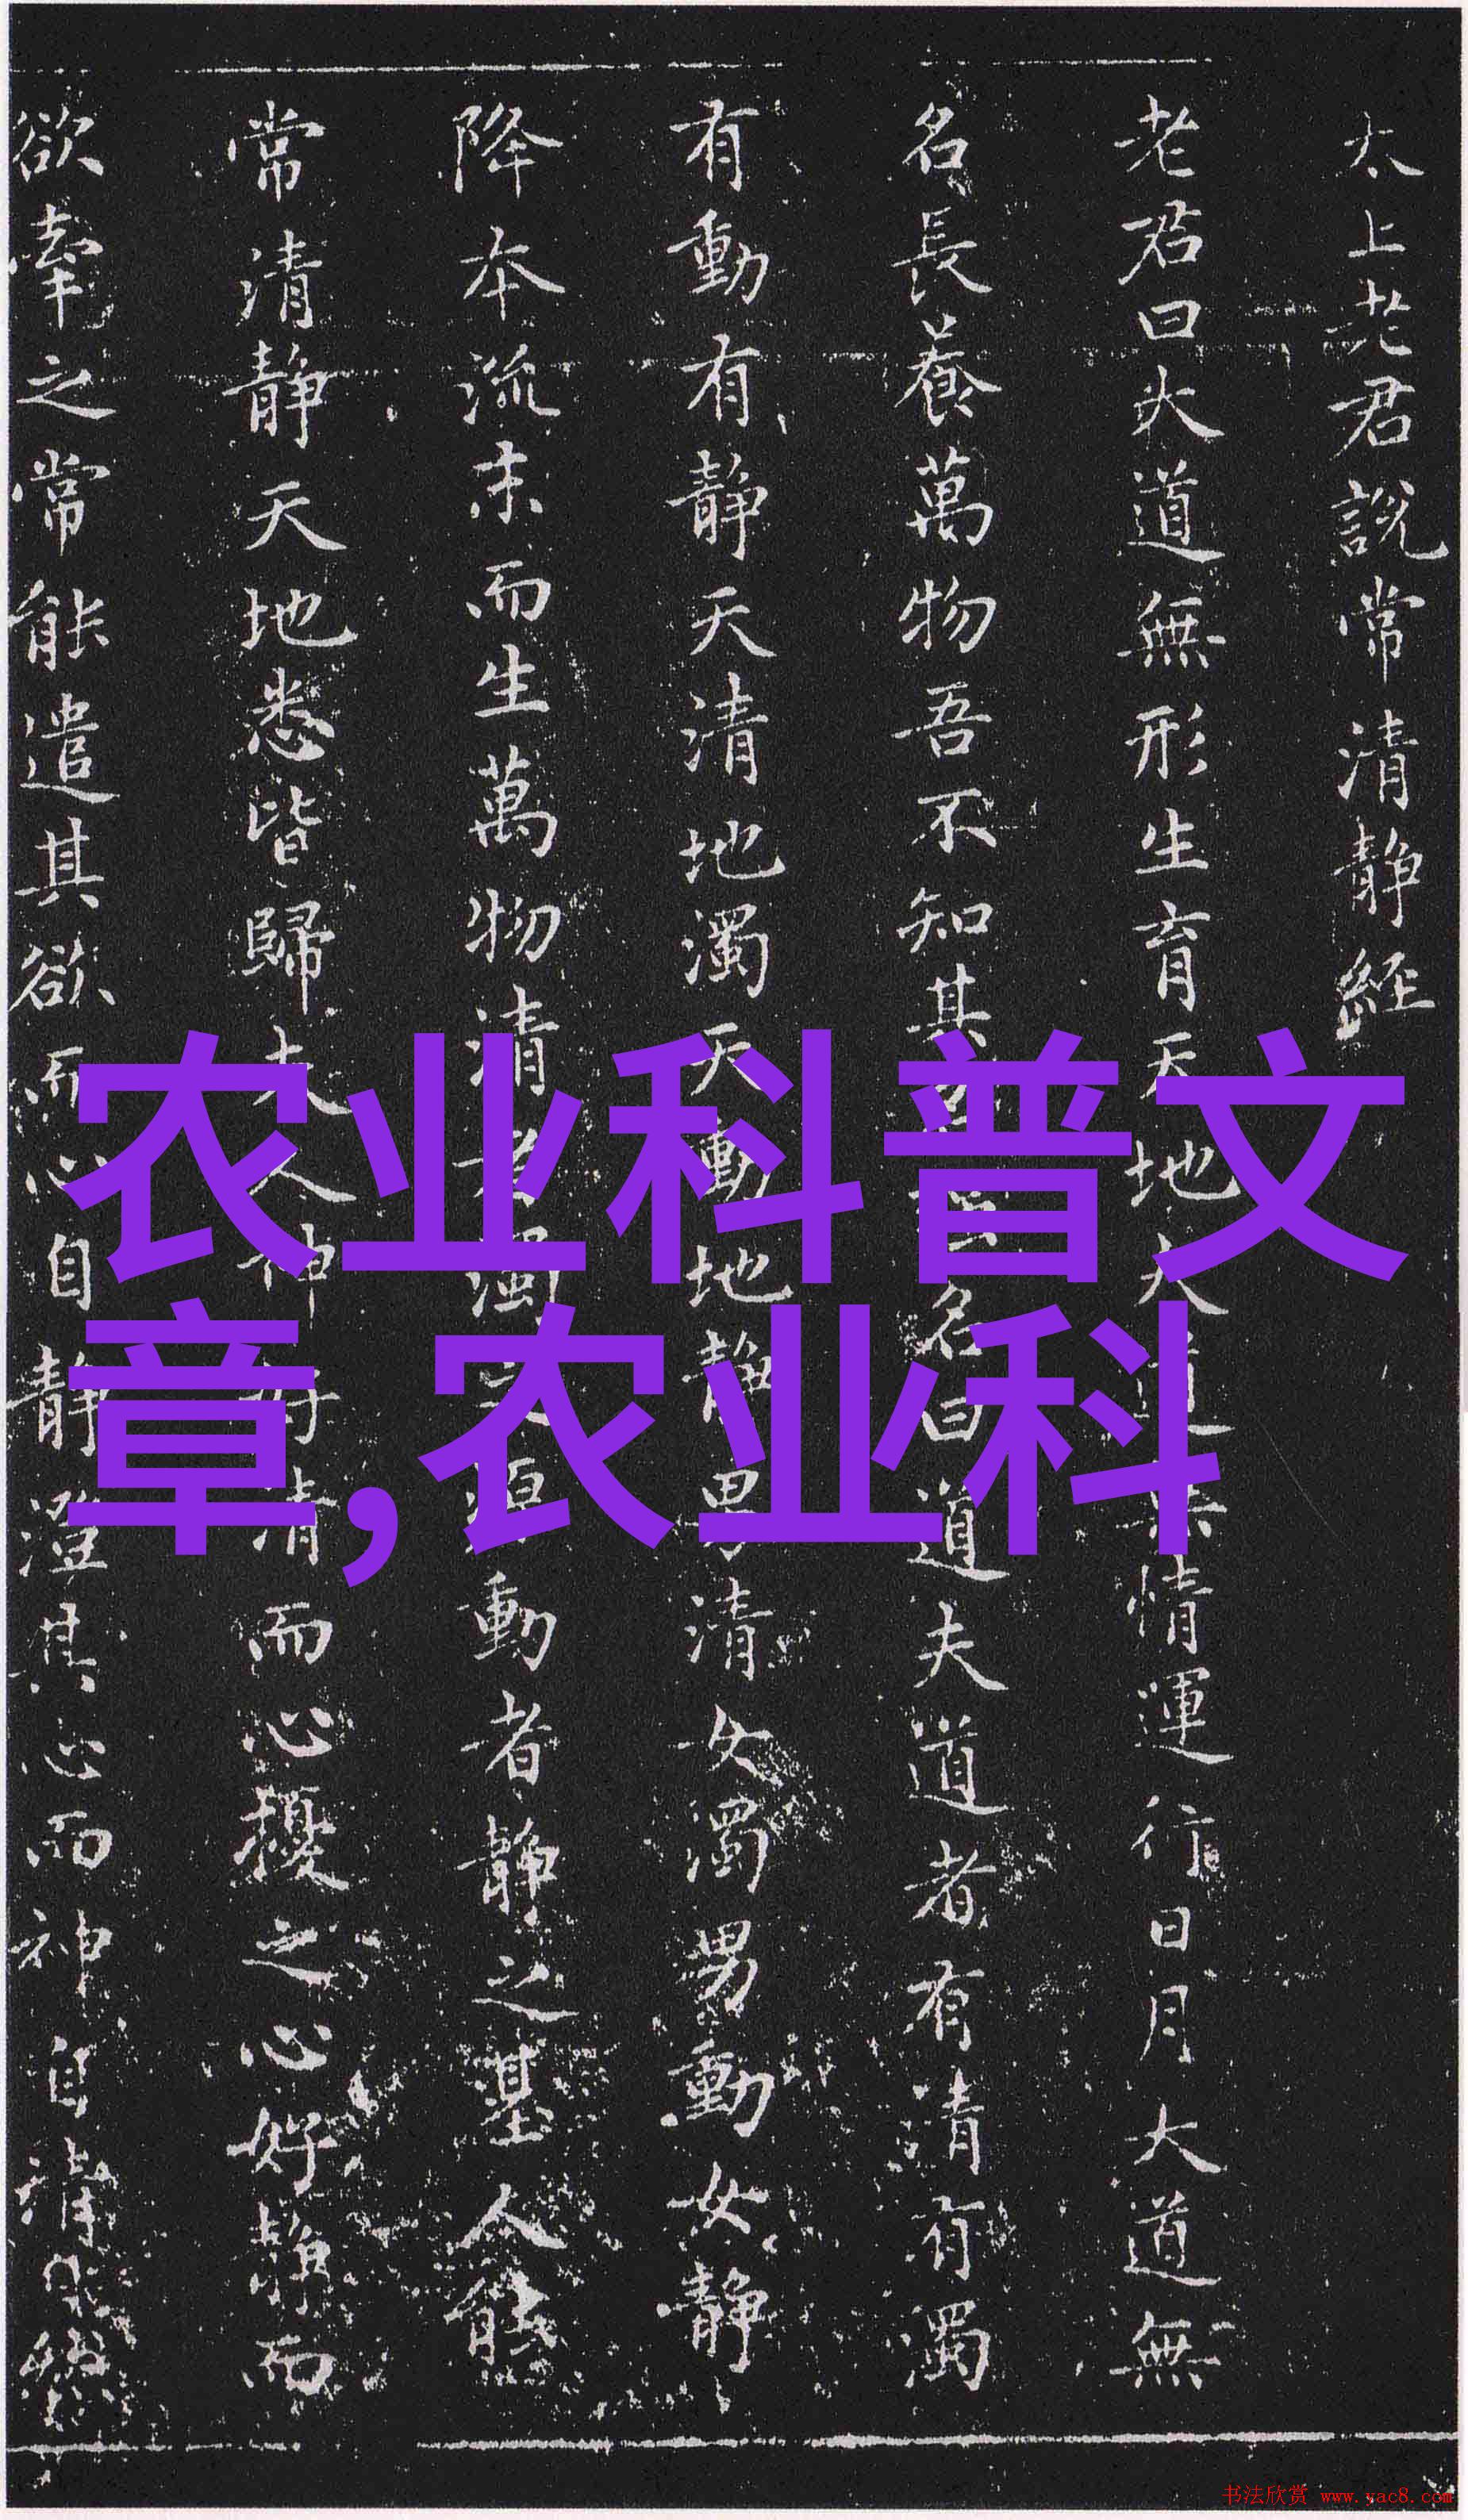 太上老君說常清靜經
老君曰大道無形生育天地大道無情運行日月大道無
名長養萬物吾不知其名曰道夫道者有清有濁
有動有靜天清地濁天動地靜男清女濁男動女靜
降本流末而生萬物清者濁之源動者靜之基人能
常清靜天地悉皆歸夫人神好清而心擾之心好靜而
欲牽之常能遣其欲而心自靜澄其心而神自清
农业科普文
章,农业科
书法欣赏 www.yac8.com